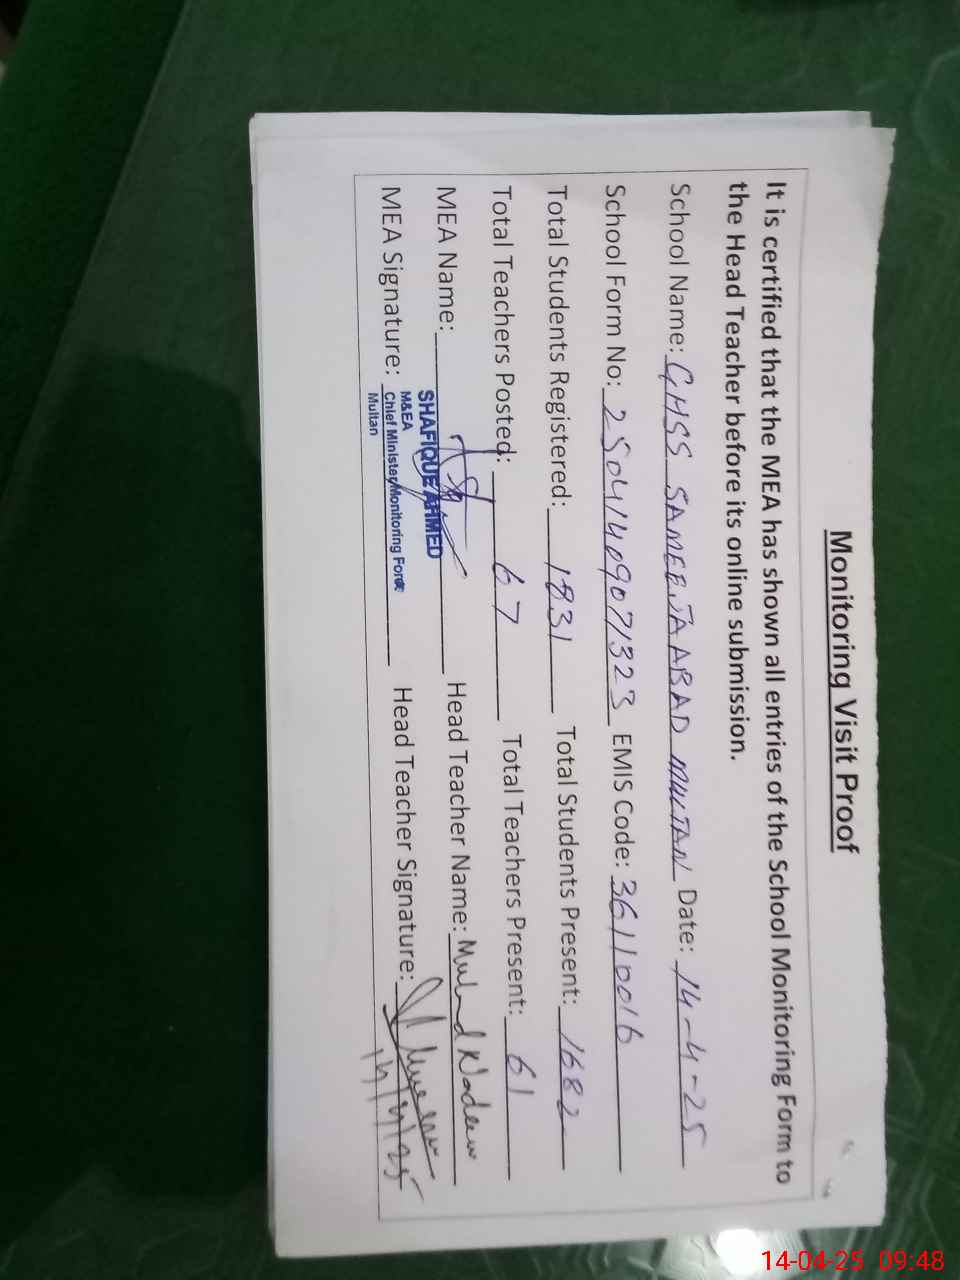 Monitoring Visit Proof
It is certified that the MEA has shown all entries of the School Monitoring Form to
the Head Teacher before its online submission.
School Name: GHSS SAMEEJAABAD MULTAN Date: 14-4-25
School Form No: 25041409071323 EMIS Code: 36110016
Total Students Registered: 1831 Total Students Present: 1682
Total Teachers Posted: 67 Total Teachers Present: 61
MEA Name: Head Teacher Name: Muhd Nadeem
SHAFIQUE AHMED
M&EA
MEA Signature: Chief Minister Monitoring Force Head Teacher Signature:
Multan
14/4/25
14-04-25 09:48